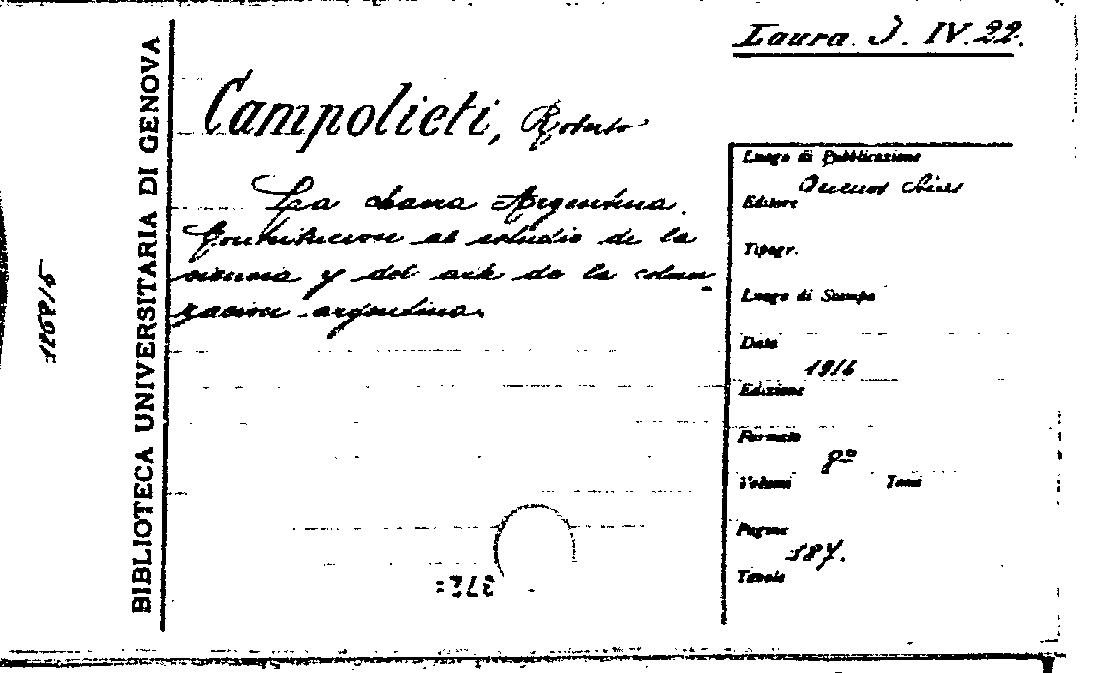 Laura J. IV. 22.
Campolieti, Roberto
La chacra Argentina.
Contribucion al estudio de la
ciencia y del arte de la coloni-
zacion argentina.
BIBLIOTECA UNIVERSITARIA DI GENOVA
Luogo di Pubblicazione
Buenos Aires
Editore
Tipogr.
Luogo di Stampa
Data
1916
Edizione
Formato
8º
Volumi Tomi
Pagine
187.
Tavole